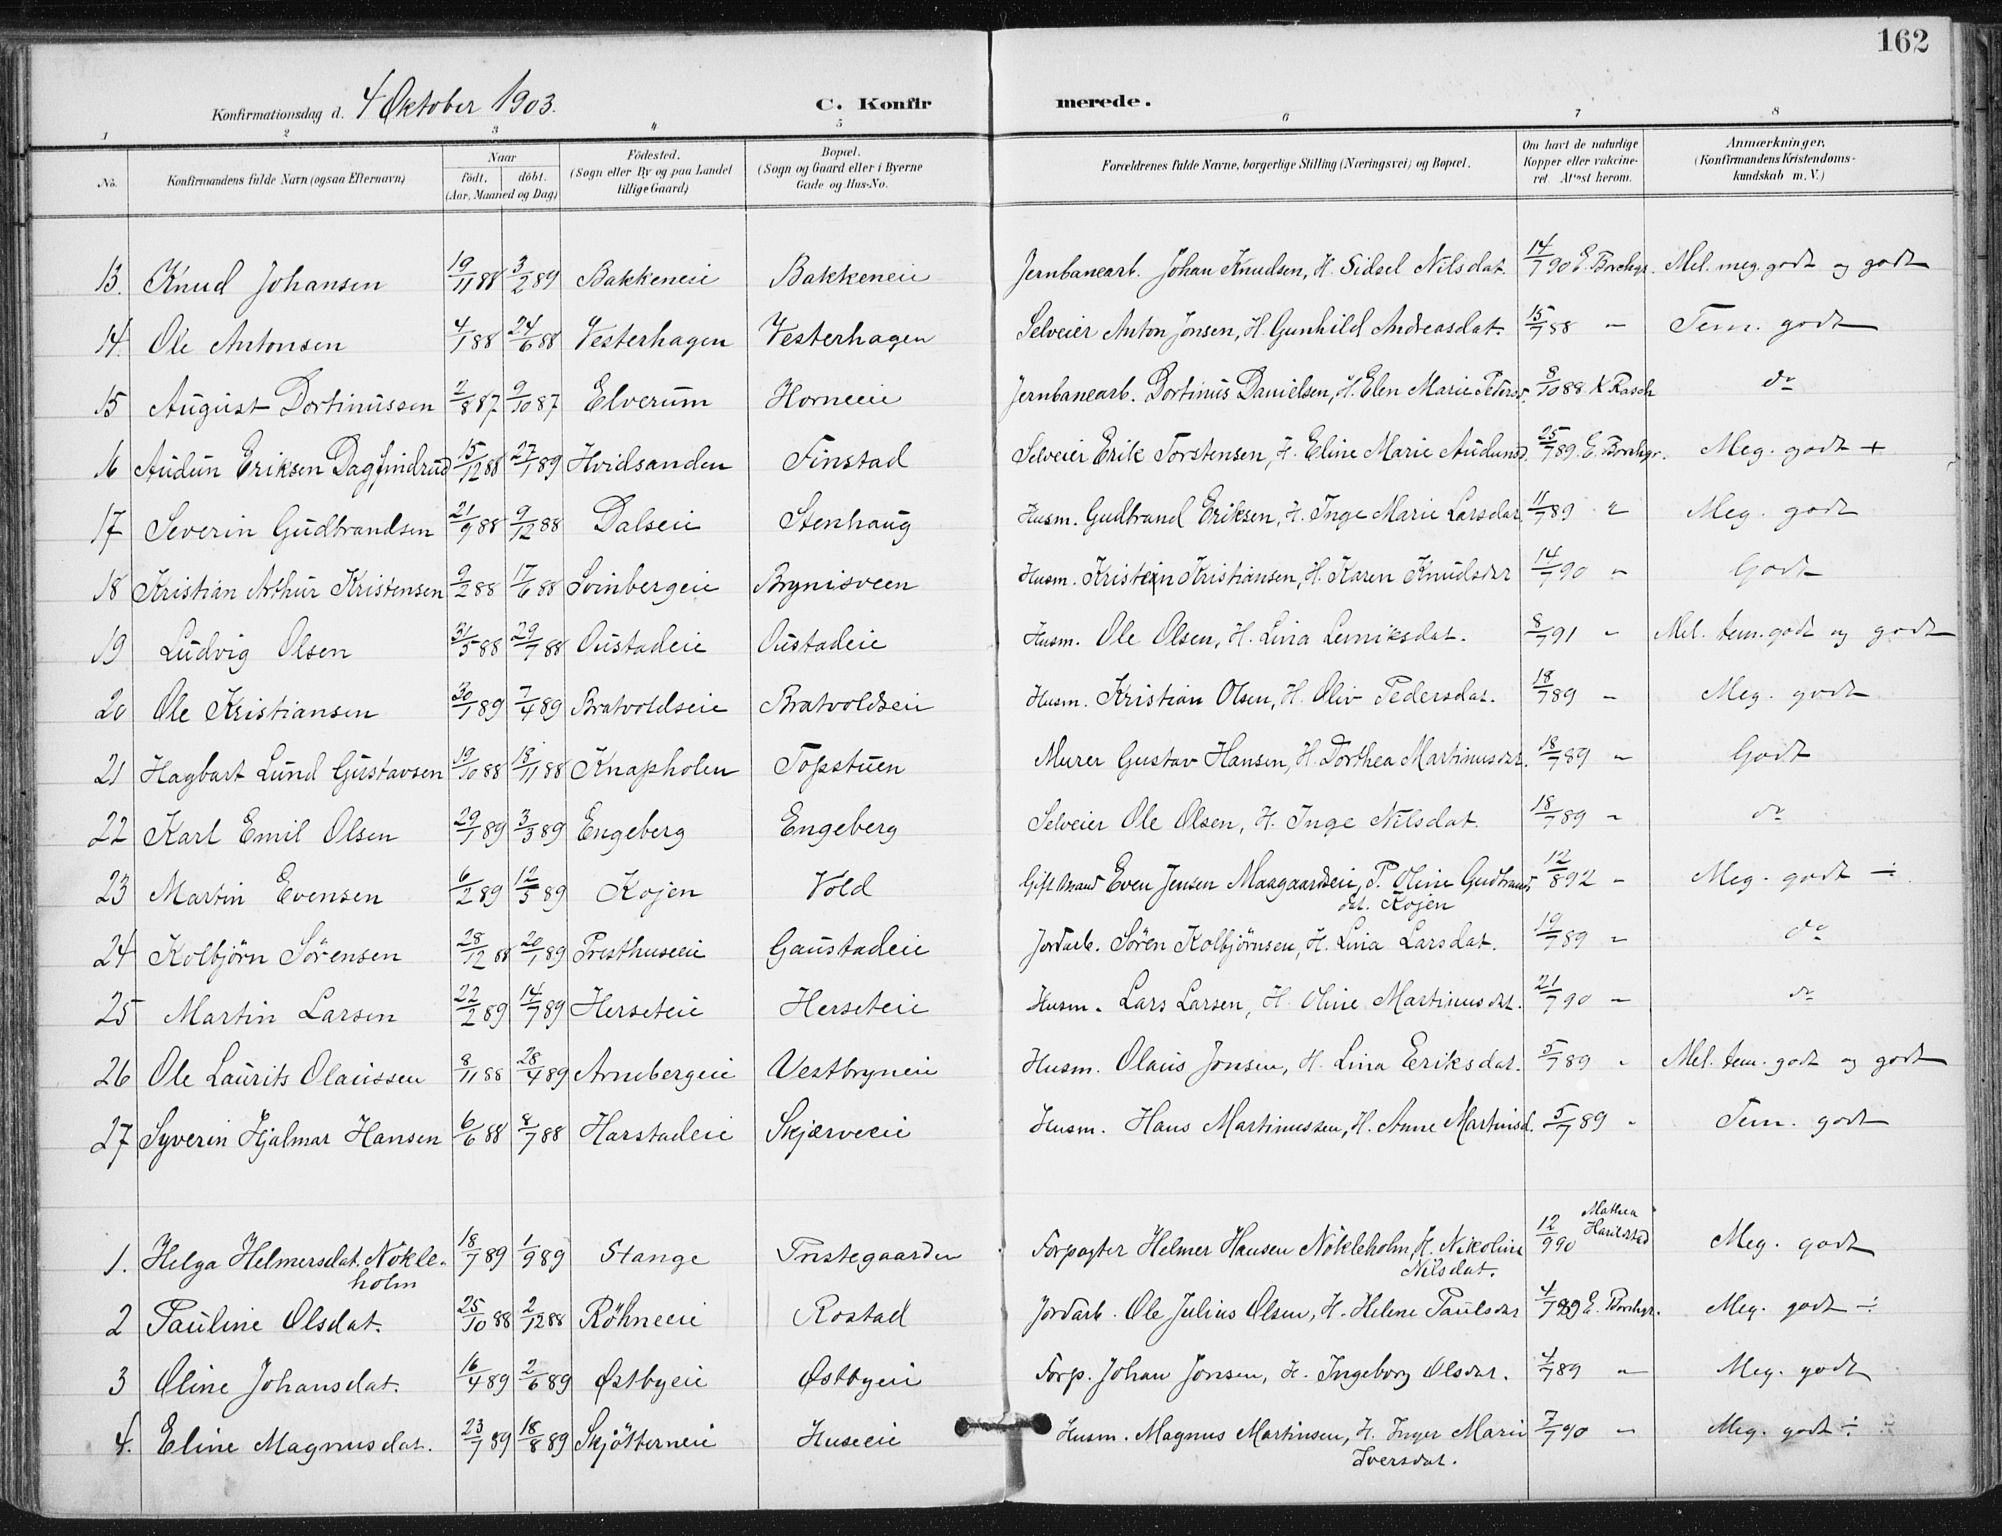 162
Konfirmationsdag d. 4 Oktober 1903. C. Konfirmerede.
1 2 3 4 5 6 7 8
No. Konfirmandens fulde Navn (ogsaa Efternavn) Naar født. (Aar, Maaned døbt. og Dag) Fødested. (Sogn eller By og paa Landet tillige Gaard) Bopæl. (Sogn og Gaard eller i Byerne Gade og Hus-No. Forældrenes fulde Navne, borgerlige Stilling (Næringsvei) og Bopæl. Om havt de naturlige Kopper eller vakcineret. Attest herom. Anmærkninger. (Konfirmandens Kristendomskundskab m. V.)
13. Knud Johansen 19/11 88 3/2 89 Bakkeneie Bakkeneie Jernbanearb. Johan Knudsen, H. Sidsel Nilsdat. 14/7 90 E. Borchgr. Mel. meg. godt og godt
14. Ole Antonsen 4/1 88 24/6 88 Vesterhagen Vesterhagen Selveier Anton Jonsen, H. Gunhild Andreasdat. 15/7 88 " Tem. godt
15 August Dortinussen 2/8 87 9/10 87 Elverum Horneeie Jernbanearb. Dortinus Danielsen, H. Elen Marie Pedersd. 8/10 88 K. Rasch do
16 Audun Eriksen Dagfindrud 15/12 88 27/1 89 Hvidsanden Finstad Selveier Erik Torstensen, H. Eline Marie Audunsd. 25/7 89 E. Borchgr. Meg. godt +
17 Severin Gudbrandsen 21/9 88 9/12 88 Dalseie Stenhaug Husm. Gudbrand Eriksen, H. Inge Marie Larsdat. 11/7 89 " Meg. godt
18 Kristian Arthur Kristensen 9/2 88 17/6 88 Svinbergeie Brynisveen Husm. Kristen Kristiansen, H. Karen Knudsdat 14/7 90 " Godt
19 Ludvig Olsen 31/5 88 29/7 88 Oustadeie Oustadeie Husm. Ole Olsen, H. Lina Lemiksdat. 8/7 91 " Mel. tem. godt og godt
20 Ole Kristiansen 30/1 89 7/4 89 Bratvoldseie Bratvoldseie Husm. Kristian Olsen, H. Oliv Pedersdat. 18/7 89 " Meg. godt
21 Hagbart Lund Gustavsen 19/10 88 18/11 88 Knapholen Topstuen Murer Gustav Hansen, H. Dorthea Martinusdat. 18/7 89 " Godt
22 Karl Emil Olsen 29/1 89 3/3 89 Engeberg Engeberg Selveier Ole Olsen, H. Inge Nilsdat. 18/7 89 " do
23 Martin Evensen 6/2 89 12/5 89 Kojen Vold Gift Mand Even Jensen Maagaardseie, P. Oline Gudbrands
dat. Kojen 12/8 92 " Meg. godt ÷
24 Kolbjørn Sørensen 28/12 88 20/1 89 Presthuseeie Gaustadeie Jordarb. Søren Kolbjørnsen, H. Lina Larsdat. 19/7 89 " do
25 Martin Larsen 22/2 89 14/7 89 Herseteie Herseteie Husm. Lars Larsen, H. Oline Martinusdat. 21/7 90 " do
26 Ole Laurits Olaussen 8/11 88 28/4 89 Arnebergeie Vestbryneie Husm. Olaus Jonsen, H. Lina Eriksdat. 5/7 89 " Mel. tem. godt og godt
27 Syverin Hjalmar Hansen 6/6 88 8/7 88 Harstadeie Skjærveeie Husm. Hans Martinussen, H. Anne Martinsd. 5/7 89 " Tem. godt
1. Helga Helmersdat. Nøkle-
holm 18/7 89 1/9 89 Stange Prestegaarden Forpagter Helmer Hansen Nøkleholm, H. Nikoline
Nilsdat. 12/9 90 Mathea Meg. godt
2 Pauline Olsdat. 25/10 88 2/12 88 Röhneeie Rostad Jordarb. Ole Julius Olsen, H. Helene Paulsdat 4/7 89 E. Borchgr. Meg. godt ÷
3 Oline Johansdat. 16/4 89 2/6 89 Østbyeie Østbyeie Forp. Johan Jonsen, H. Ingeborg Olsdat. 4/7 89 " Meg. godt
4. Eline Magnusdat. 23/7 89 18/8 89 Skjötterneie Huseeie Husm. Magnus Martinsen, H. Inger Marie
Iversdat. 7/7 90 " Meg. godt ÷